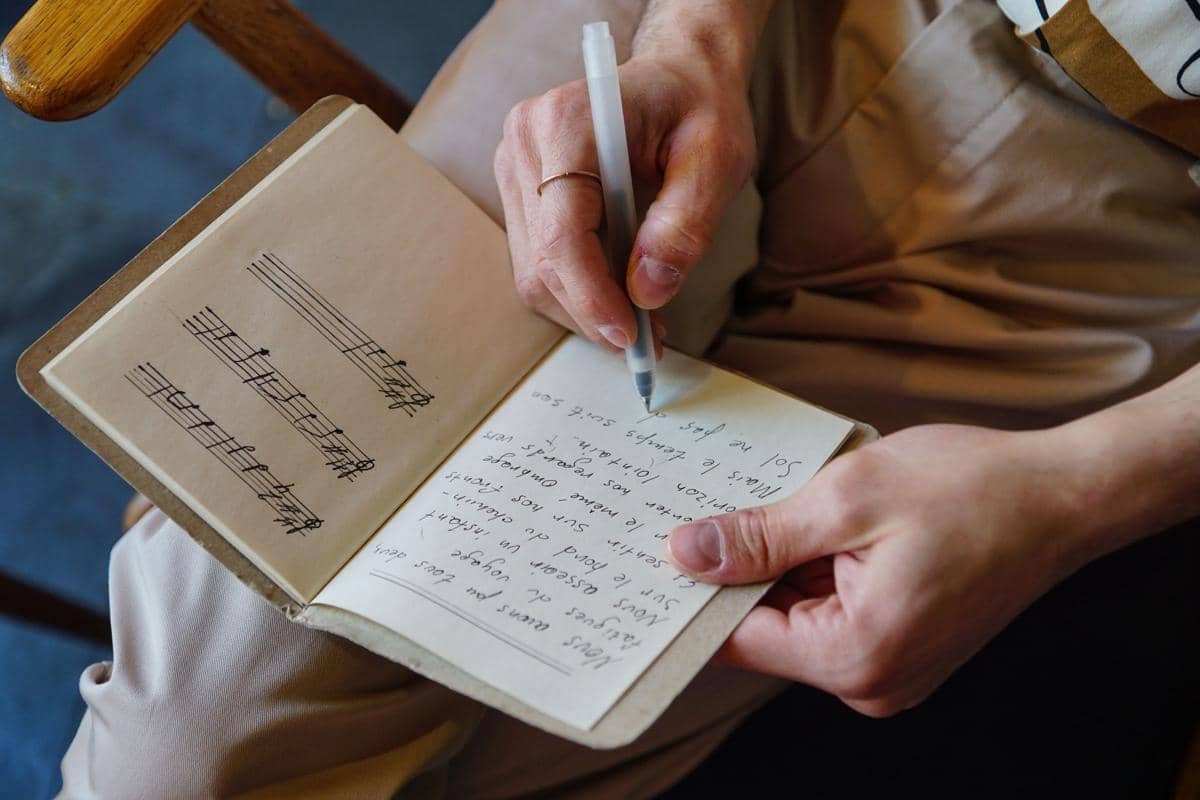 Nous avons pu tous deux,
fatigues du voyage
Nous asseoir un instant
sur le bord du chemin-
sentir sur nos fronts
le même, ombrage
nos regards vers
lointain.
Mais le temps suit son
Sol ne pas